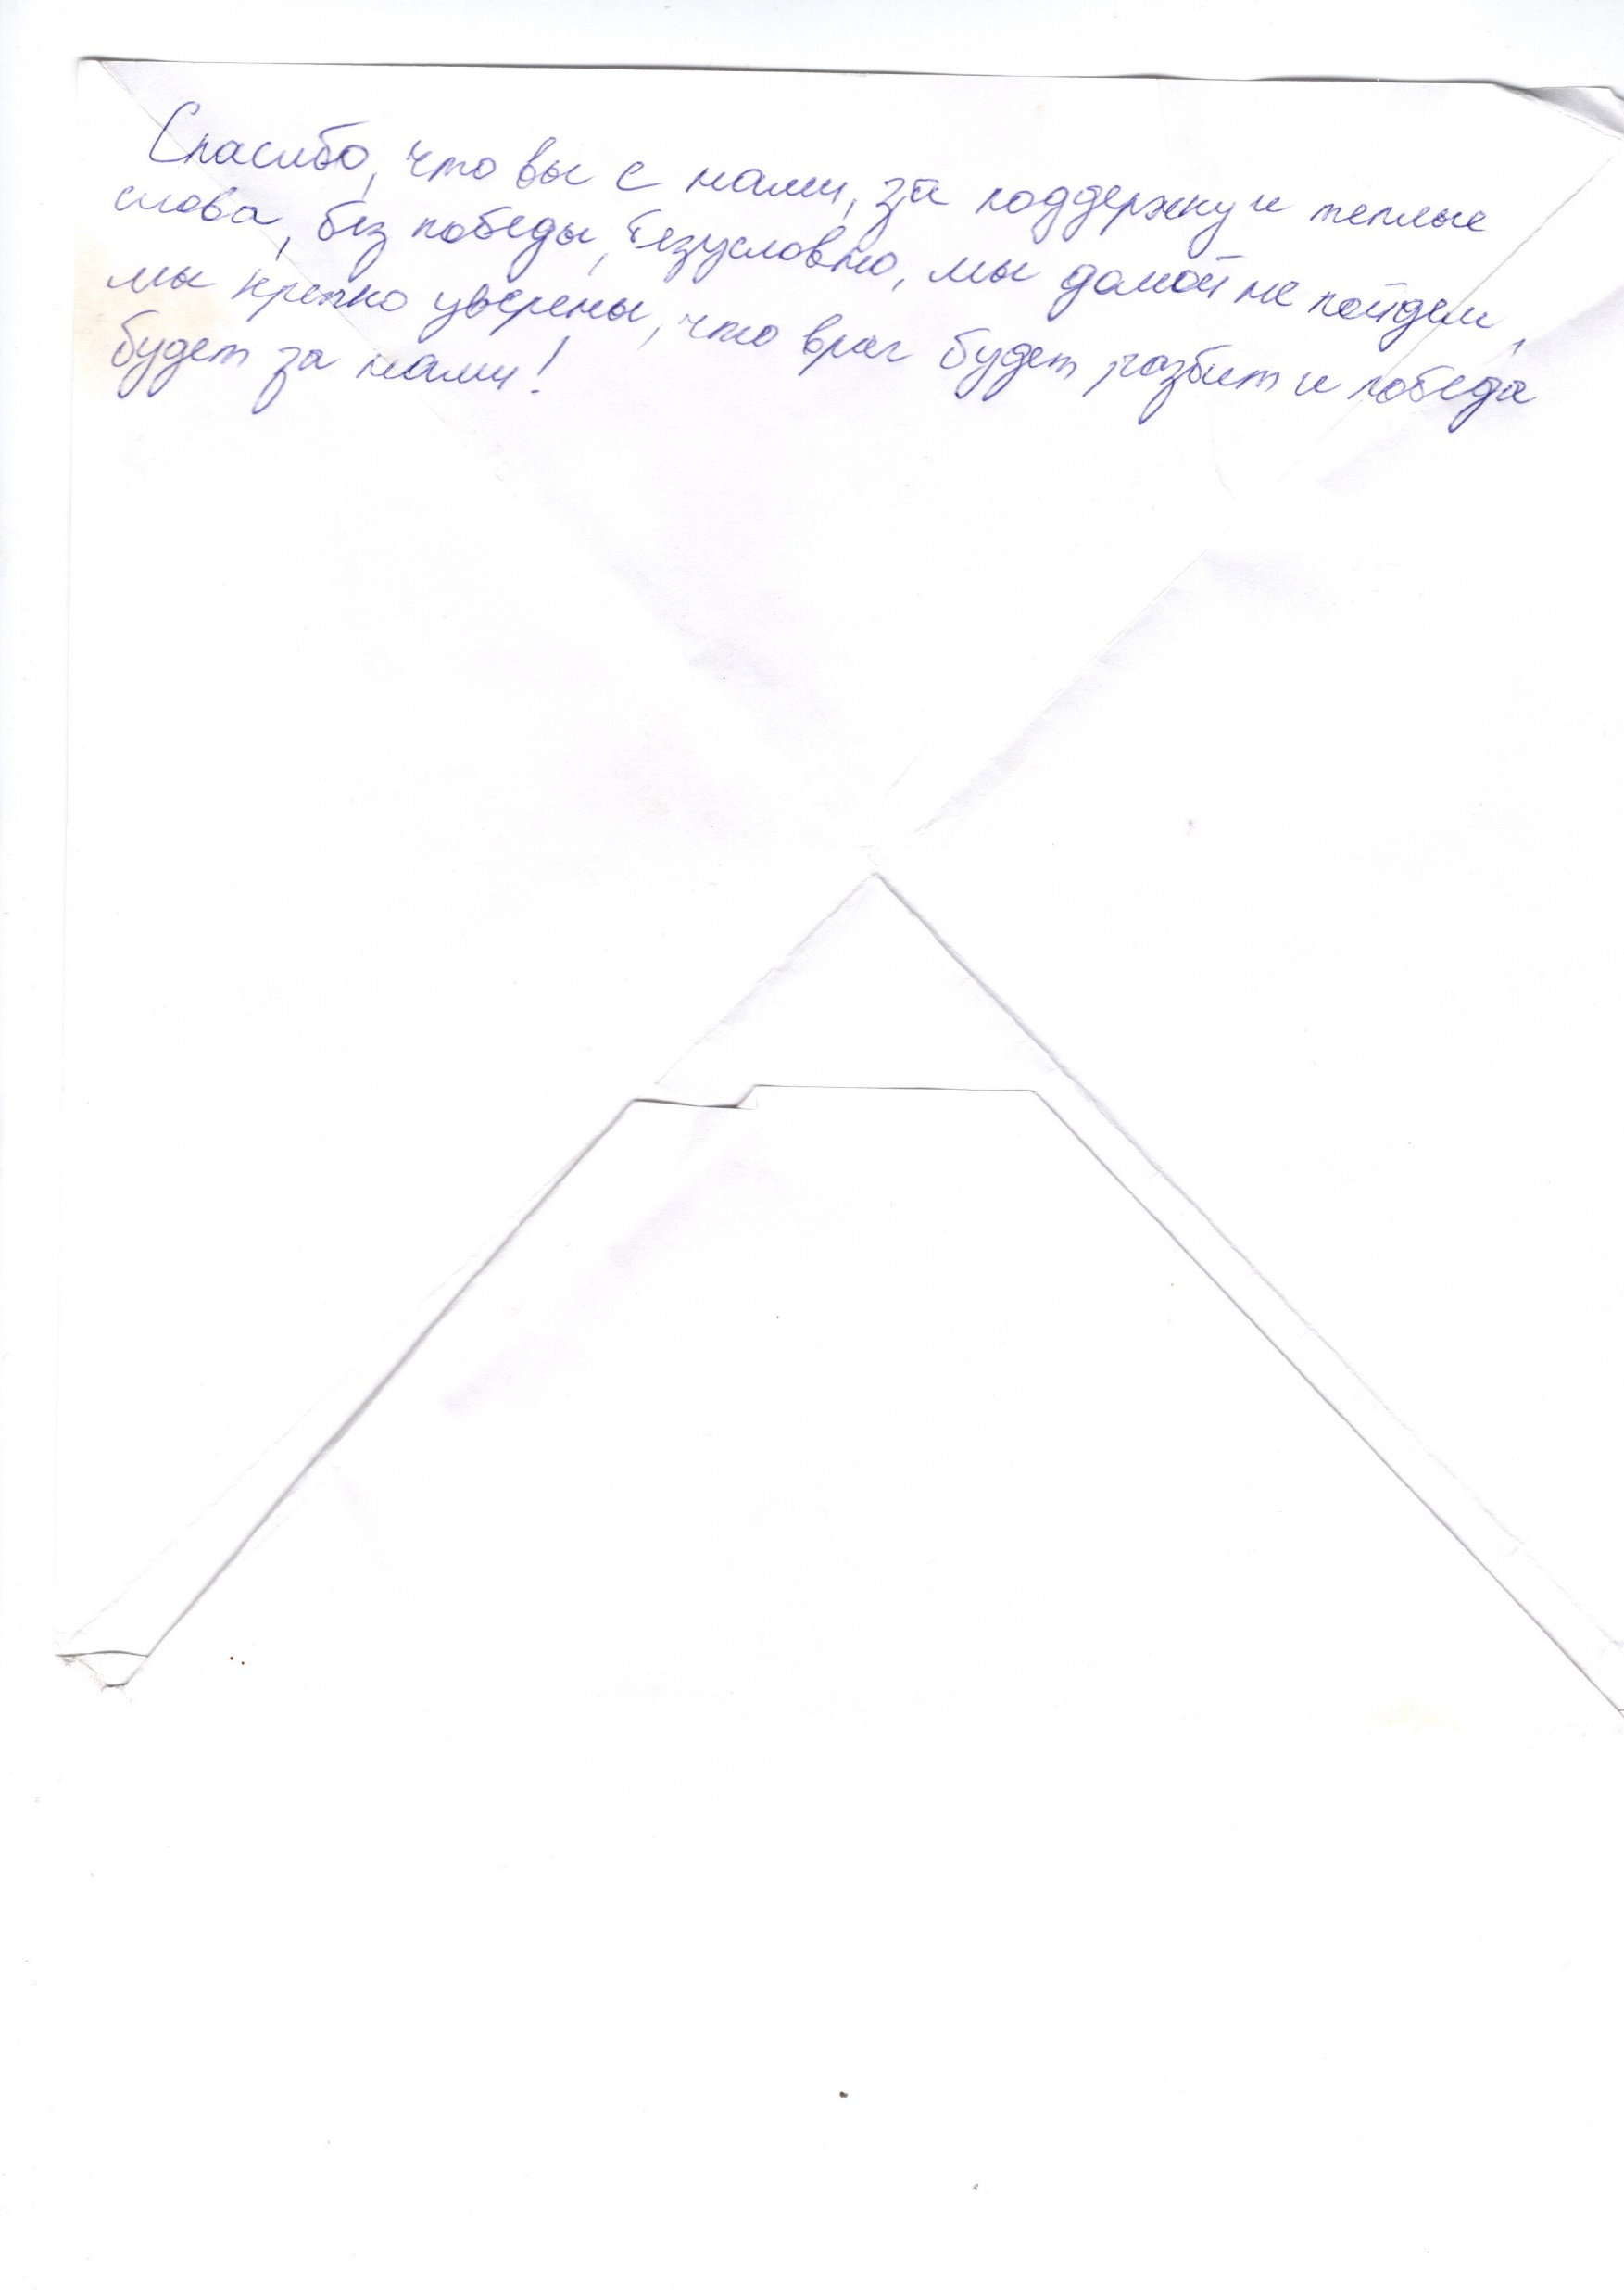 Спасибо, что вы с нами, за поддержку и теплые
слова, без победы, безусловно, мы домой не пойдем,
мы крепко уверены, что враг будет разбит и победа
будет за нами!